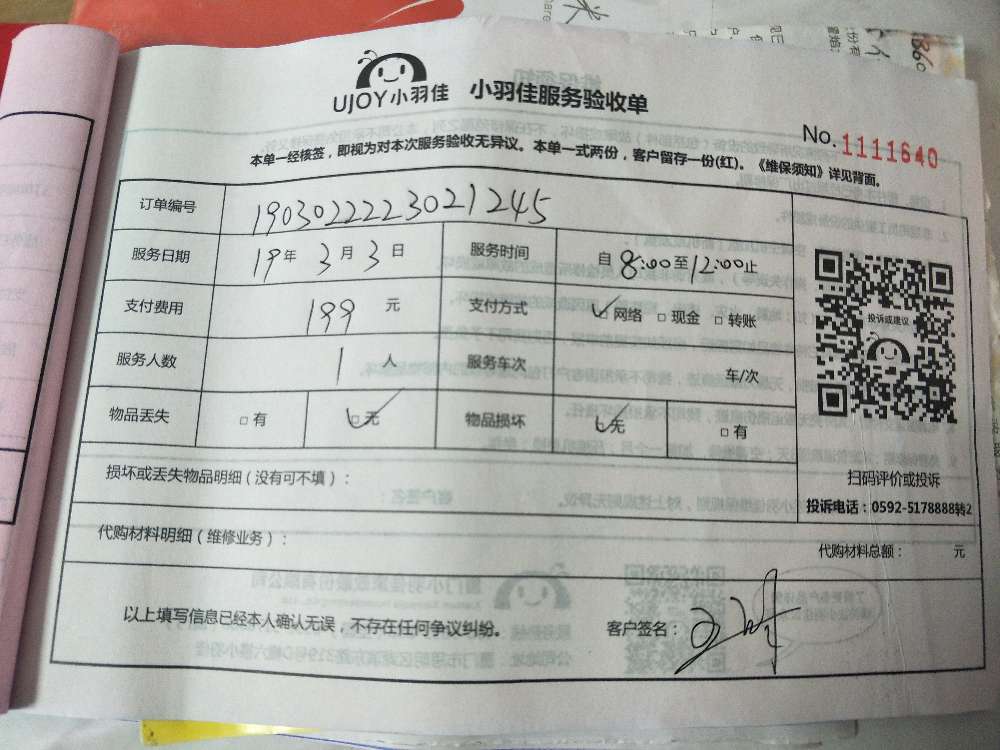 UJOY小羽佳 小羽佳服务验收单
No. 1111640
本单一经核签，即视为对本次服务验收无异议。本单一式两份，客户留存一份(红)。《维保须知》详见背面。
订单编号 1903022223021245
服务日期 19年3月3日 服务时间 自8:00至12:00止
支付费用 199元 支付方式 ☑网络 □现金 □转账
投诉或建议
服务人数 1人 服务车次 车/次
物品丢失 □有 ☑无 物品损坏 ☑无 □有
损坏或丢失物品明细(没有可不填)：
扫码评价或投诉
投诉电话：0592-5178888转2
代购材料明细(维修业务)：
代购材料总额： 元
以上填写信息已经本人确认无误，不存在任何争议纠纷。 客户签名：